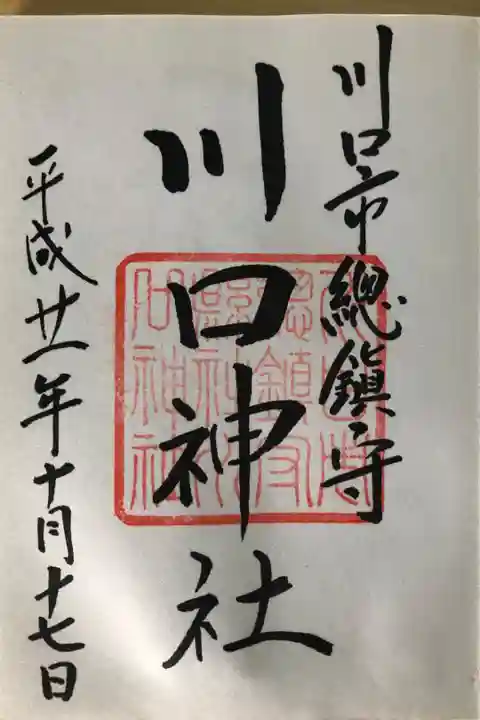 川口市総鎮守
川口神社
平成廿一年十月十七日